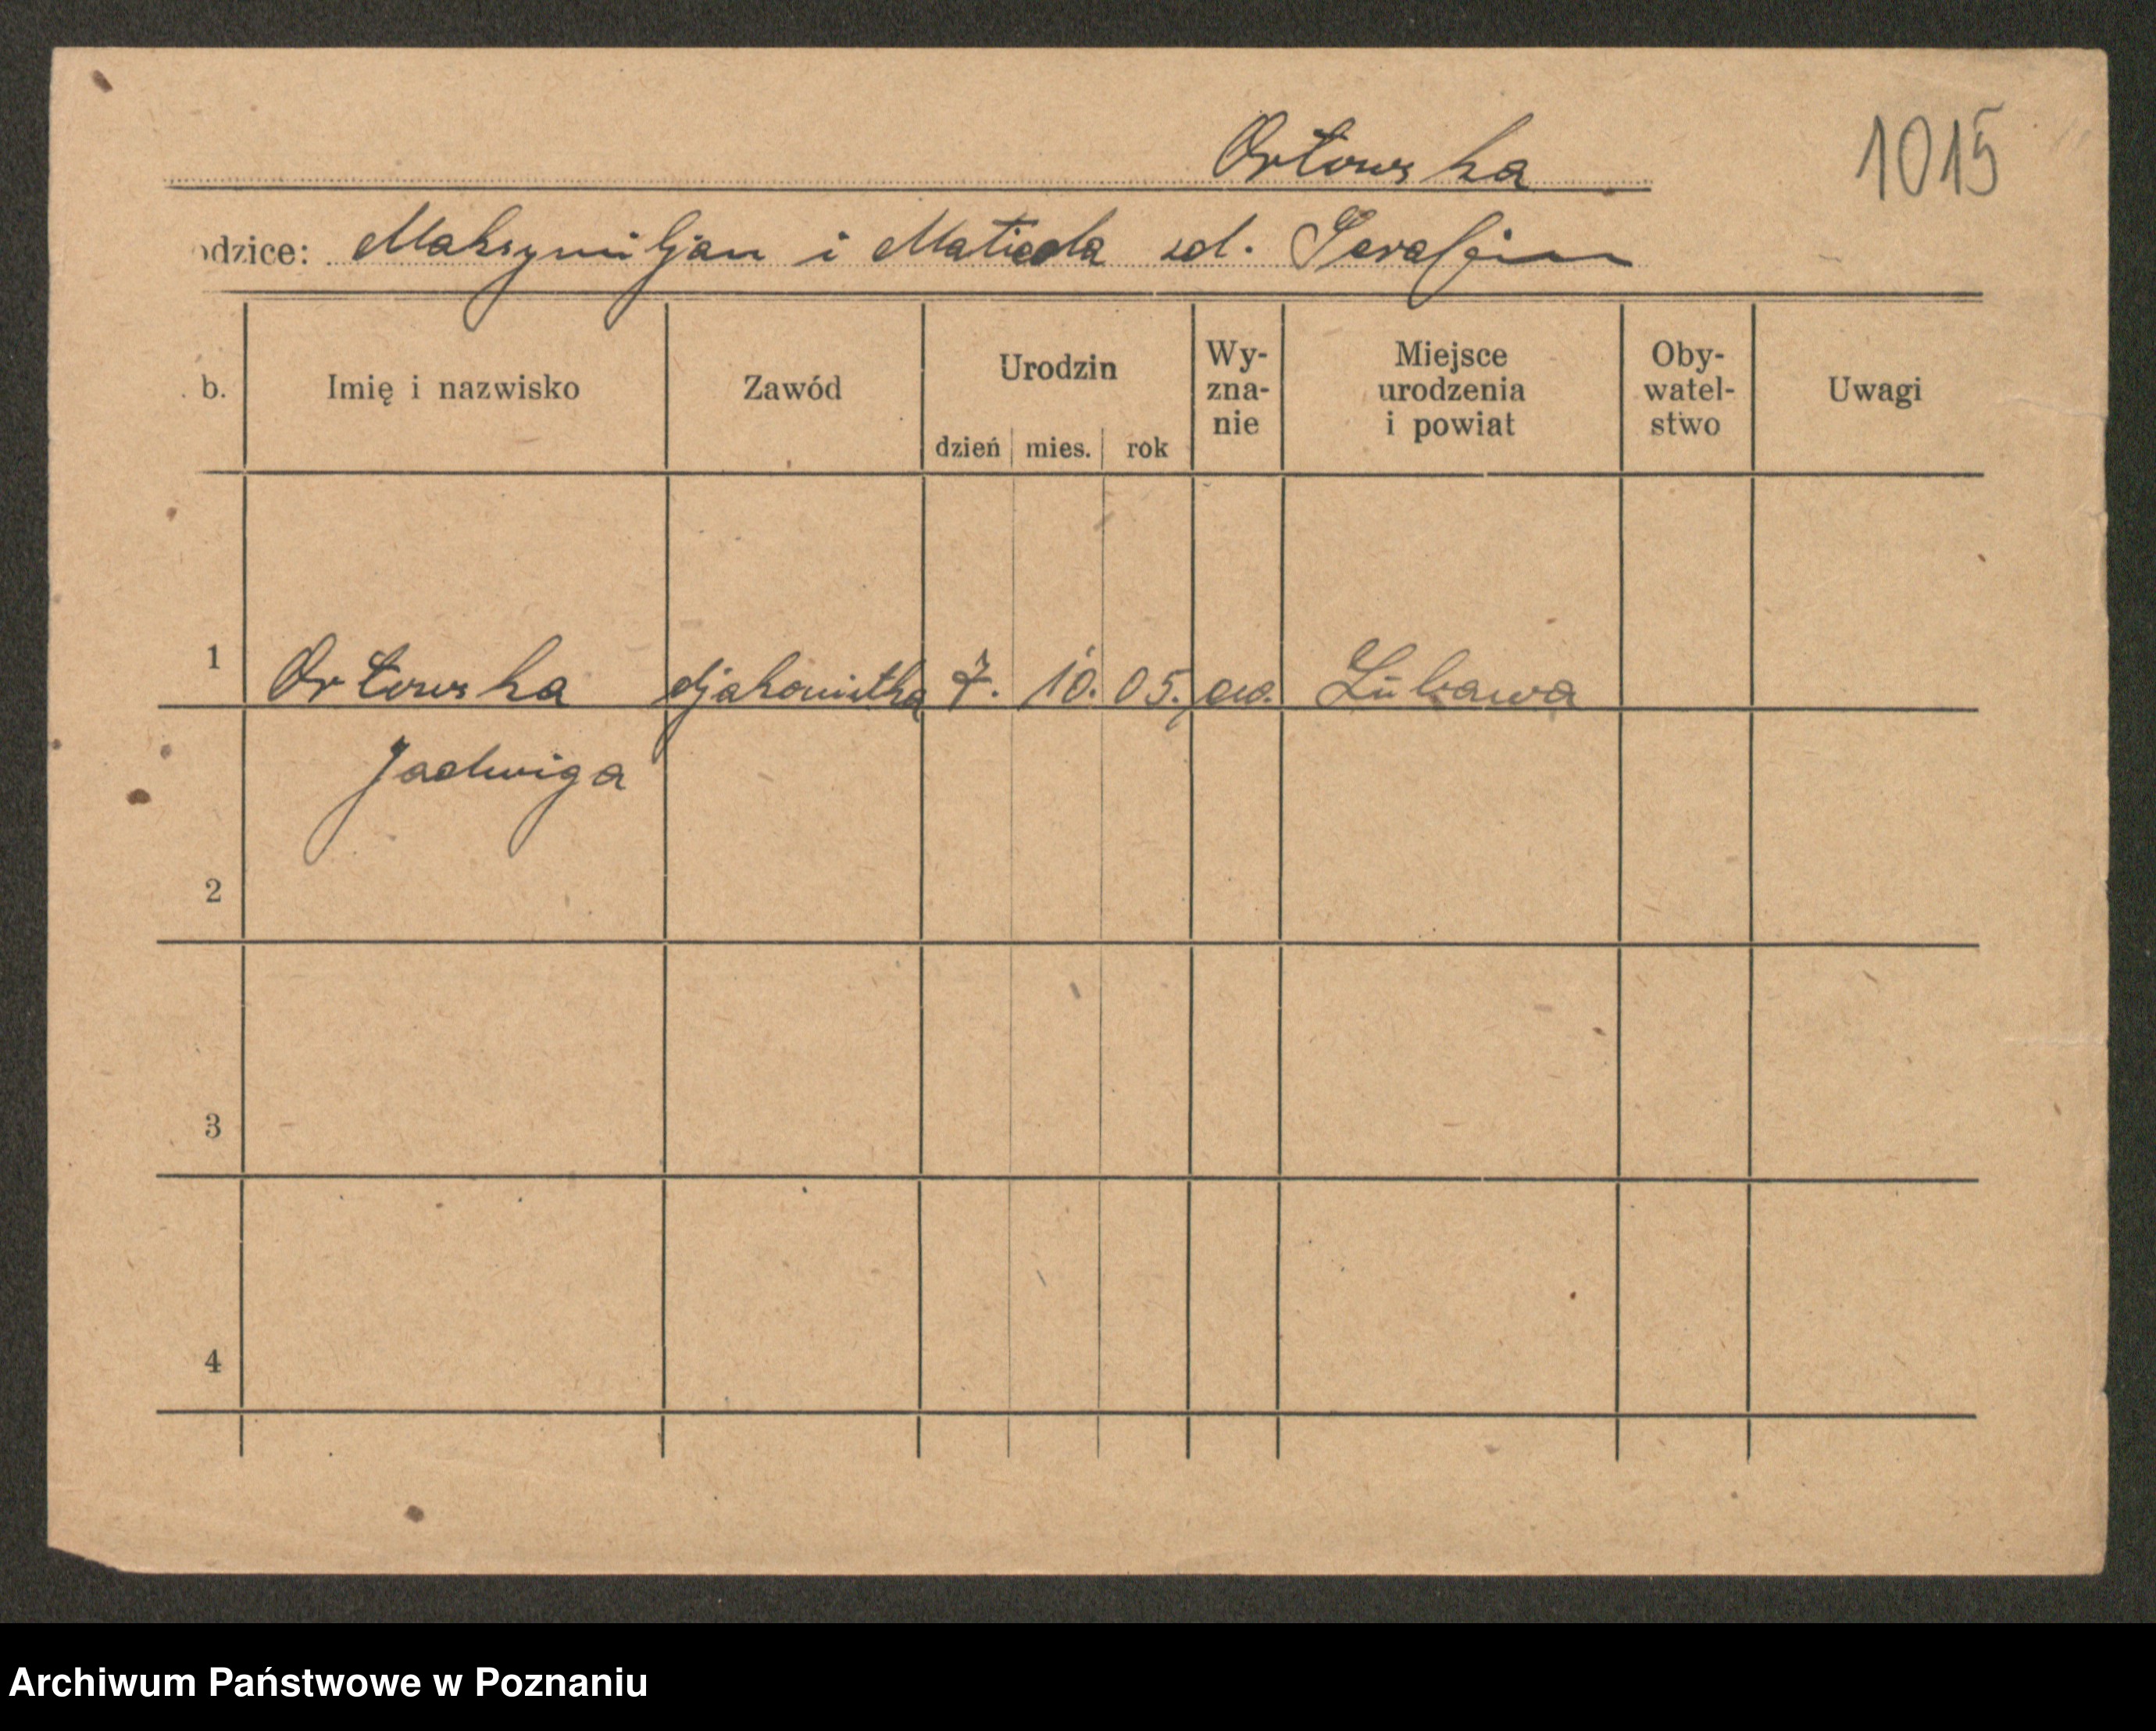 Orłowska
1015
odzice: Maksymiljan i Matilda zd. Serafin
b.
Imię i nazwisko
Zawód
Urodzin
dzień mies. rok
Wy-
zna-
nie
Miejsce
urodzenia
i powiat
Oby-
watel-
stwo
Uwagi
1 Orłowska djakonistka 7. 10. 05. ew. Lubawa
Jadwiga
2
3
4
Archiwum Państwowe w Poznaniu